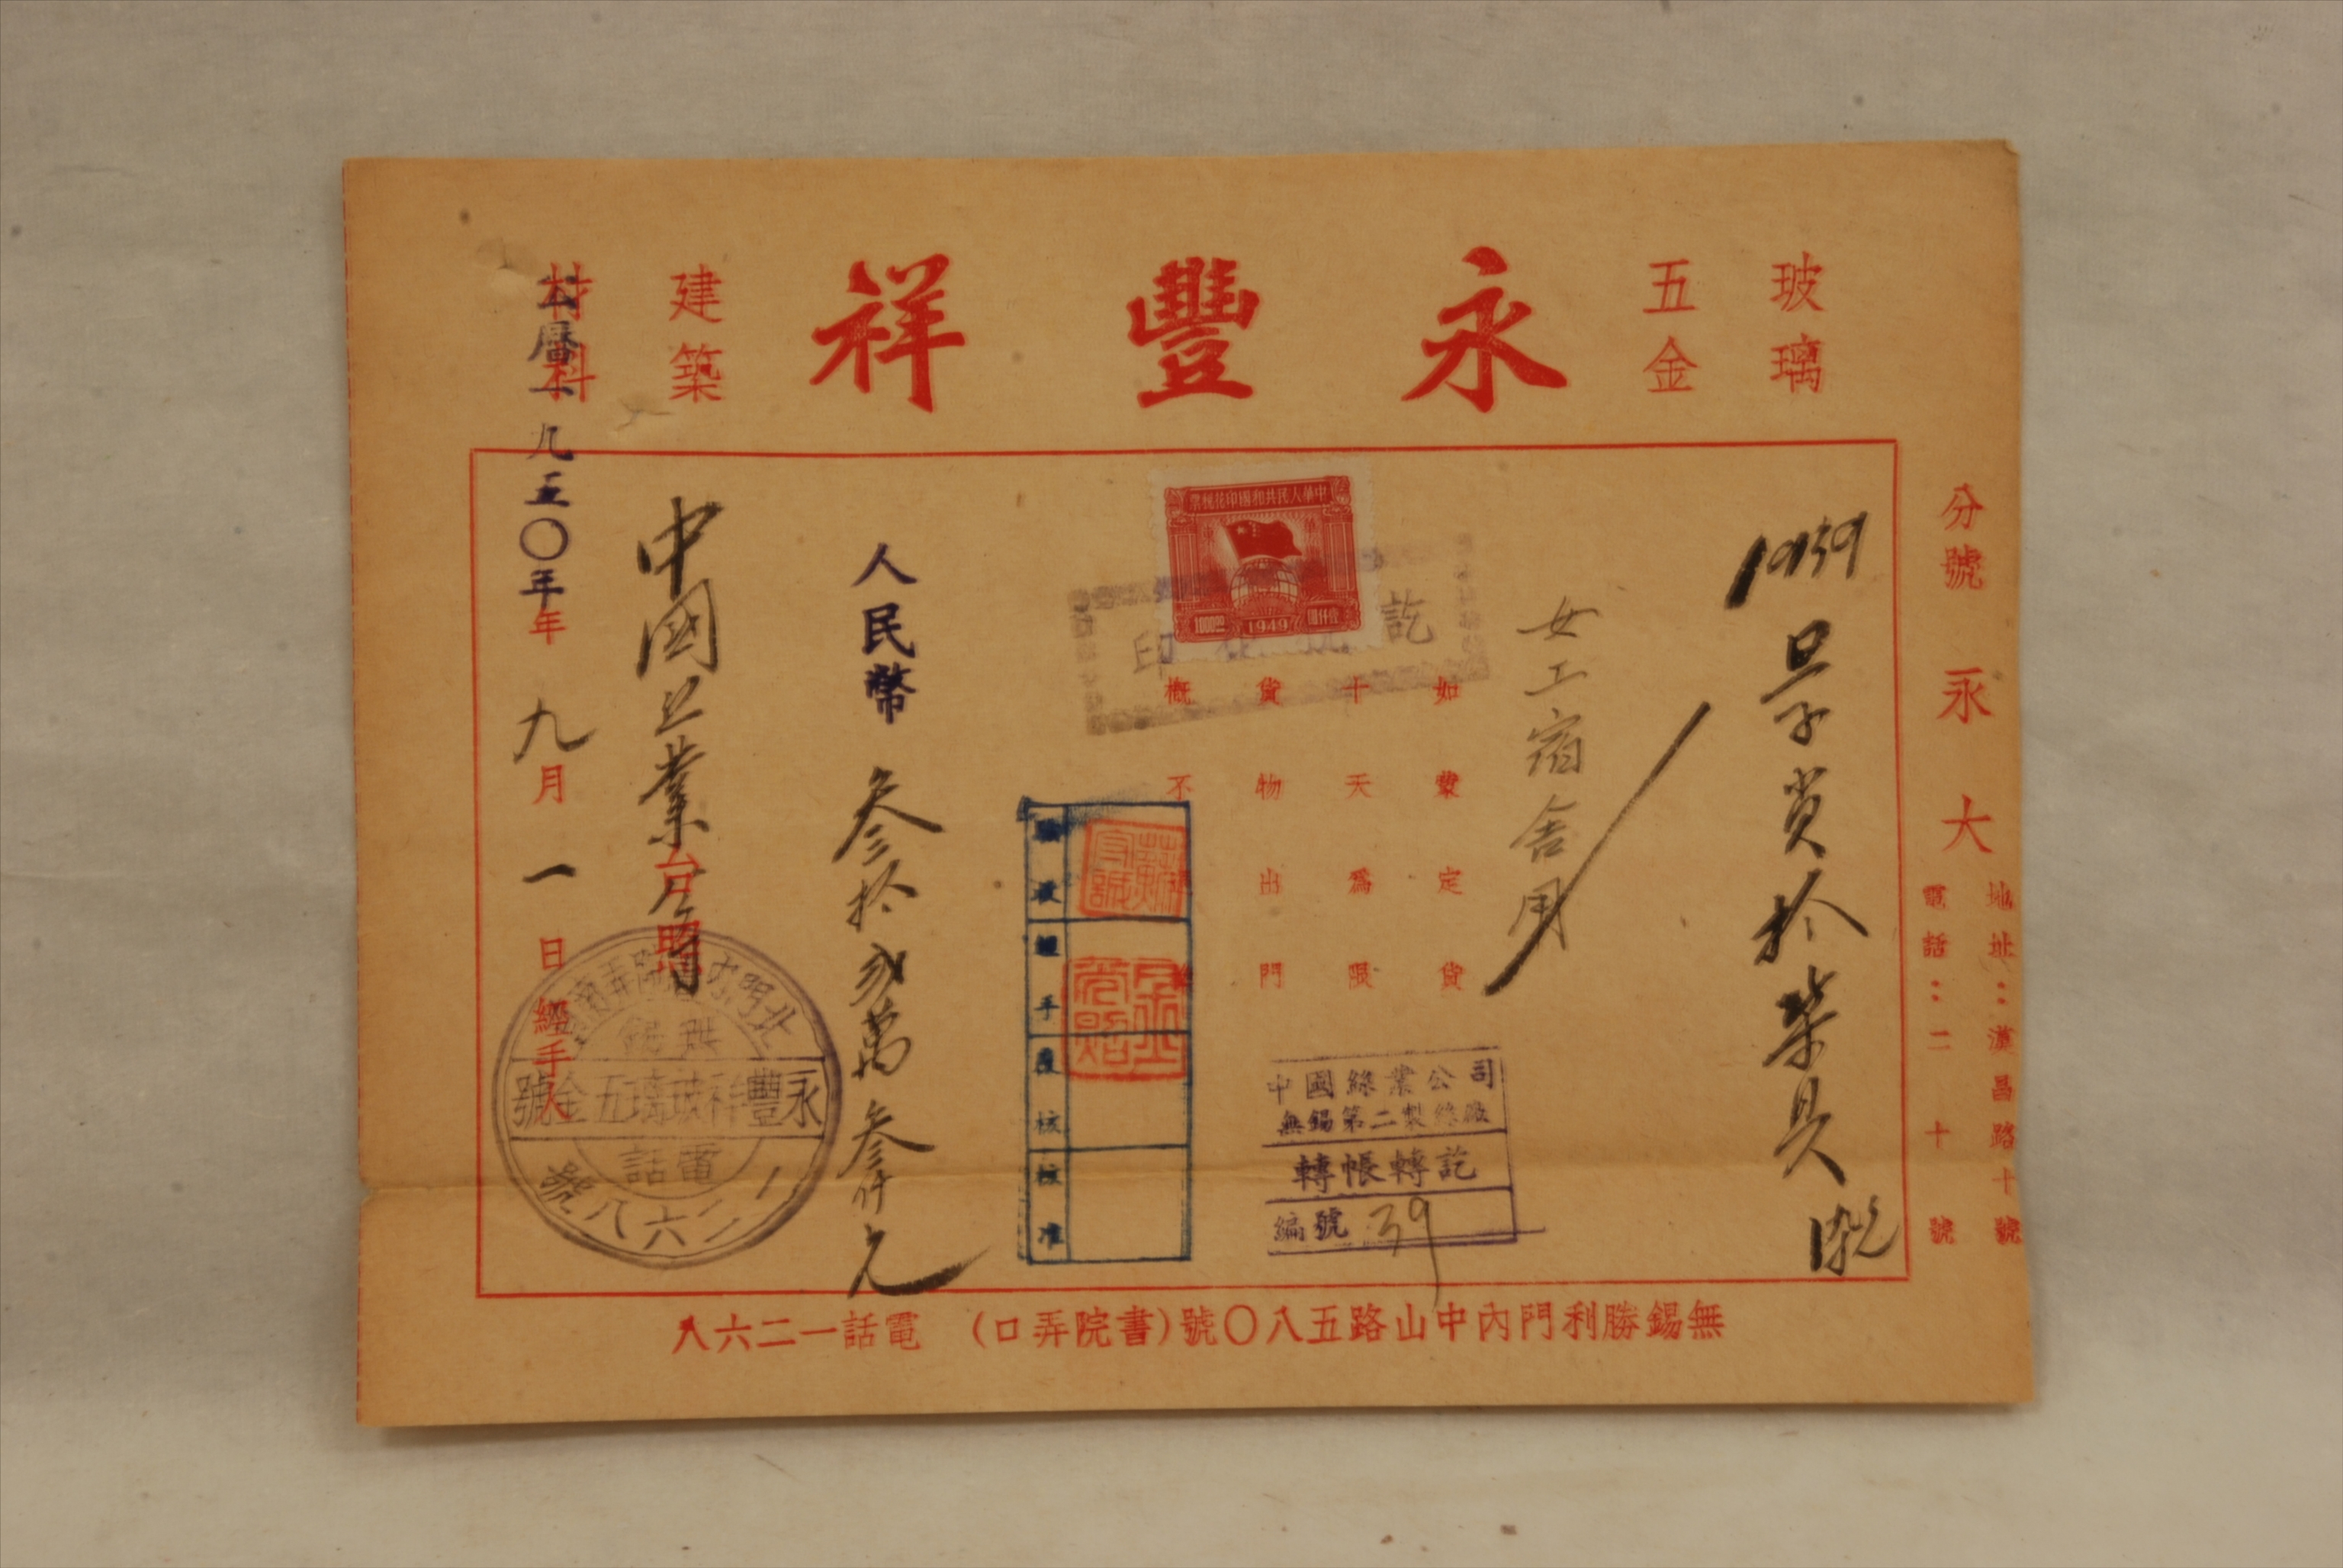 玻璃
五金
永豐祥
建築
材料
分號 永大
地址：漢昌路十號
電話：二十號
女工宿舍用
如蒙定貨
十天為限
貨物出門
概不
中華人民共和國印花稅票
1000
1949
壹仟圓
印花 訖
中國絲業公司
無錫第二製絲廠
轉帳轉訖
編號 39
驗收
經手
覆核
核准
人民幣 叁拾貳萬叁仟元
中國 業公司
台照
公曆一九五〇年年九月一日經手人
無錫
永豐祥玻璃五金號
電話
一二六八
無錫勝利門內中山路五八〇號(書院弄口) 電話一二六八